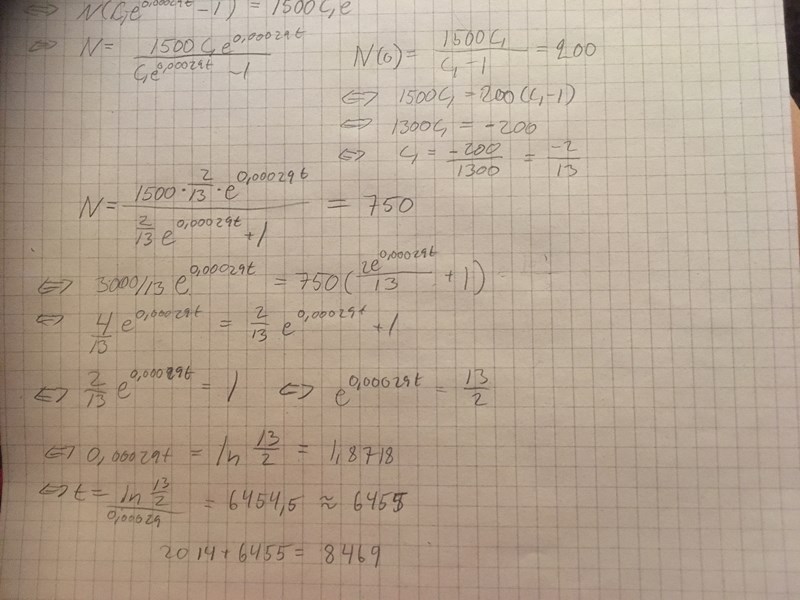 ⇔ N(C₁e^0,00029t - 1) = 1500C₁e
⇔ N = 1500C₁e^0,00029t / C₁e^0,00029t - 1
N(0) = 1500C₁ / C₁ - 1 = 200
⇔ 1500C₁ = 200(C₁-1)
⇔ 1300C₁ = -200
⇔ C₁ = -200/1300 = -2/13
N = 1500 · 2/13 · e^0,00029t / 2/13 e^0,00029t + 1 = 750
⇔ 3000/13 e^0,00029t = 750(2e^0,00029t/13 + 1)
⇔ 4/13 e^0,00029t = 2/13 e^0,00029t + 1
⇔ 2/13 e^0,00029t = 1 ⇔ e^0,00029t = 13/2
⇔ 0,00029t = ln 13/2 = 1,8718
⇔ t = ln 13/2 / 0,00029 = 6454,5 ≈ 6455
2014 + 6455 = 8469